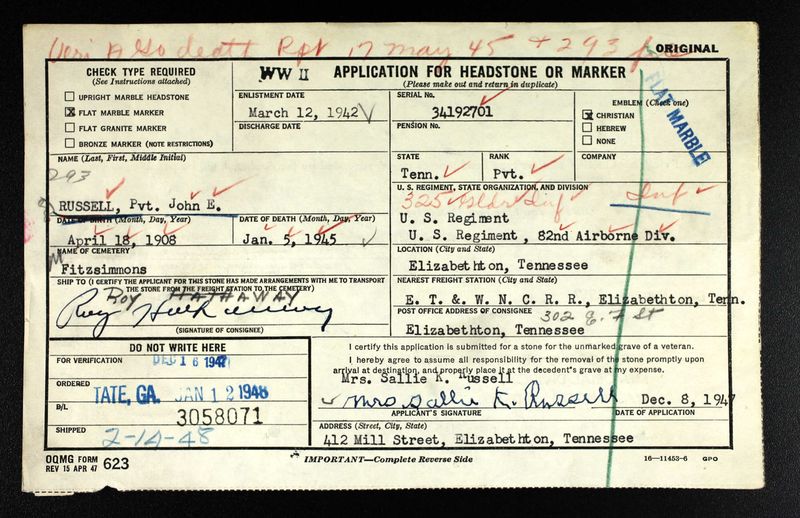 Veri A Go death Rpt 17 May 45 + 293
ORIGINAL
CHECK TYPE REQUIRED
(See Instructions attached)
UPRIGHT MARBLE HEADSTONE
X FLAT MARBLE MARKER
FLAT GRANITE MARKER
BRONZE MARKER (NOTE RESTRICTIONS)
WW II APPLICATION FOR HEADSTONE OR MARKER
(Please make out and return in duplicate)
ENLISTMENT DATE
March 12, 1942
DISCHARGE DATE
SERIAL No.
34192701
PENSION No.
EMBLEM (Check one)
X CHRISTIAN
HEBREW
NONE
FLAT MARBLE
NAME (Last, First, Middle Initial)
293
RUSSELL, Pvt. John E.
STATE
Tenn.
RANK
Pvt.
COMPANY
DATE OF BIRTH (Month, Day, Year)
April 18, 1908
DATE OF DEATH (Month, Day, Year)
Jan. 5, 1945
U. S. REGIMENT, STATE ORGANIZATION, AND DIVISION
325 Gldr Inf Inf
U. S. Regiment
U. S. Regiment , 82nd Airborne Div.
NAME OF CEMETERY
Fitzsimmons
LOCATION (City and State)
Elizabethton, Tennessee
SHIP TO (I CERTIFY THE APPLICANT FOR THIS STONE HAS MADE ARRANGEMENTS WITH ME TO TRANSPORT
THE STONE FROM THE FREIGHT STATION TO THE CEMETERY)
ROY HATHAWAY
Roy Hathaway
(SIGNATURE OF CONSIGNEE)
NEAREST FREIGHT STATION (City and State)
E. T. &. W. N. C. R. R., Elizabethton, Tenn.
POST OFFICE ADDRESS OF CONSIGNEE
302 E. F St
Elizabethton, Tennessee
DO NOT WRITE HERE
FOR VERIFICATION DEC 16 1947
ORDERED
TATE, GA. JAN 12 1948
B/L 3058071
SHIPPED 2-14-48
I certify this application is submitted for a stone for the unmarked grave of a veteran.
I hereby agree to assume all responsibility for the removal of the stone promptly upon
arrival at destination, and properly place it at the decedent's grave at my expense.
Mrs. Sallie K. Russell
Mrs Sallie K. Russell Dec. 8, 1947
APPLICANT'S SIGNATURE DATE OF APPLICATION
ADDRESS (Street, City, State)
412 Mill Street, Elizabethton, Tennessee
OQMG FORM
REV 15 APR 47 623
IMPORTANT—Complete Reverse Side
16—11453-6 GPO